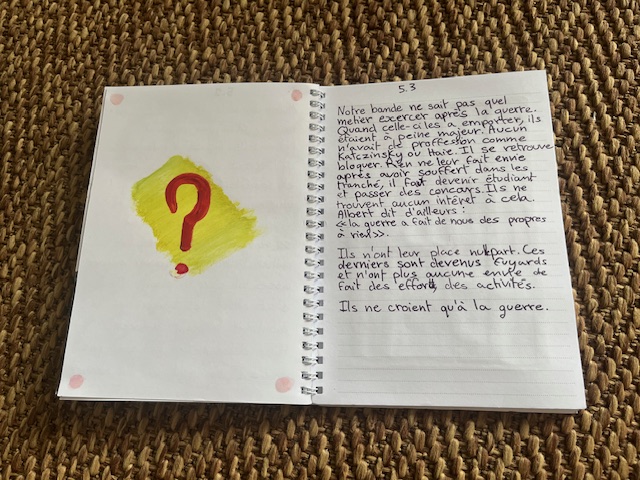 5.3
Notre bande ne sait pas quel
metier exercer après la guerre.
Quand celle-ci les a emporter, ils
étaient à peine majeur. Aucun
n'avait de proffession comme
Katczinsky ou Haie. Il se retrouve
bloquer. Rien ne leur fait envie
après avoir souffert dans les
tranché, il faut devenir étudiant
et passer des concours. Ils ne
trouvent aucun intéret à cela.
Albert dit d'ailleurs :
<<la guerre a fait de nous des propres
à rien>>.
Ils n'ont leur place nullpart. Ces
derniers sont devenus fuyards
et n'ont plus aucune envie de
fait des efforts, des activités.
Ils ne croient qu'à la guerre.
?